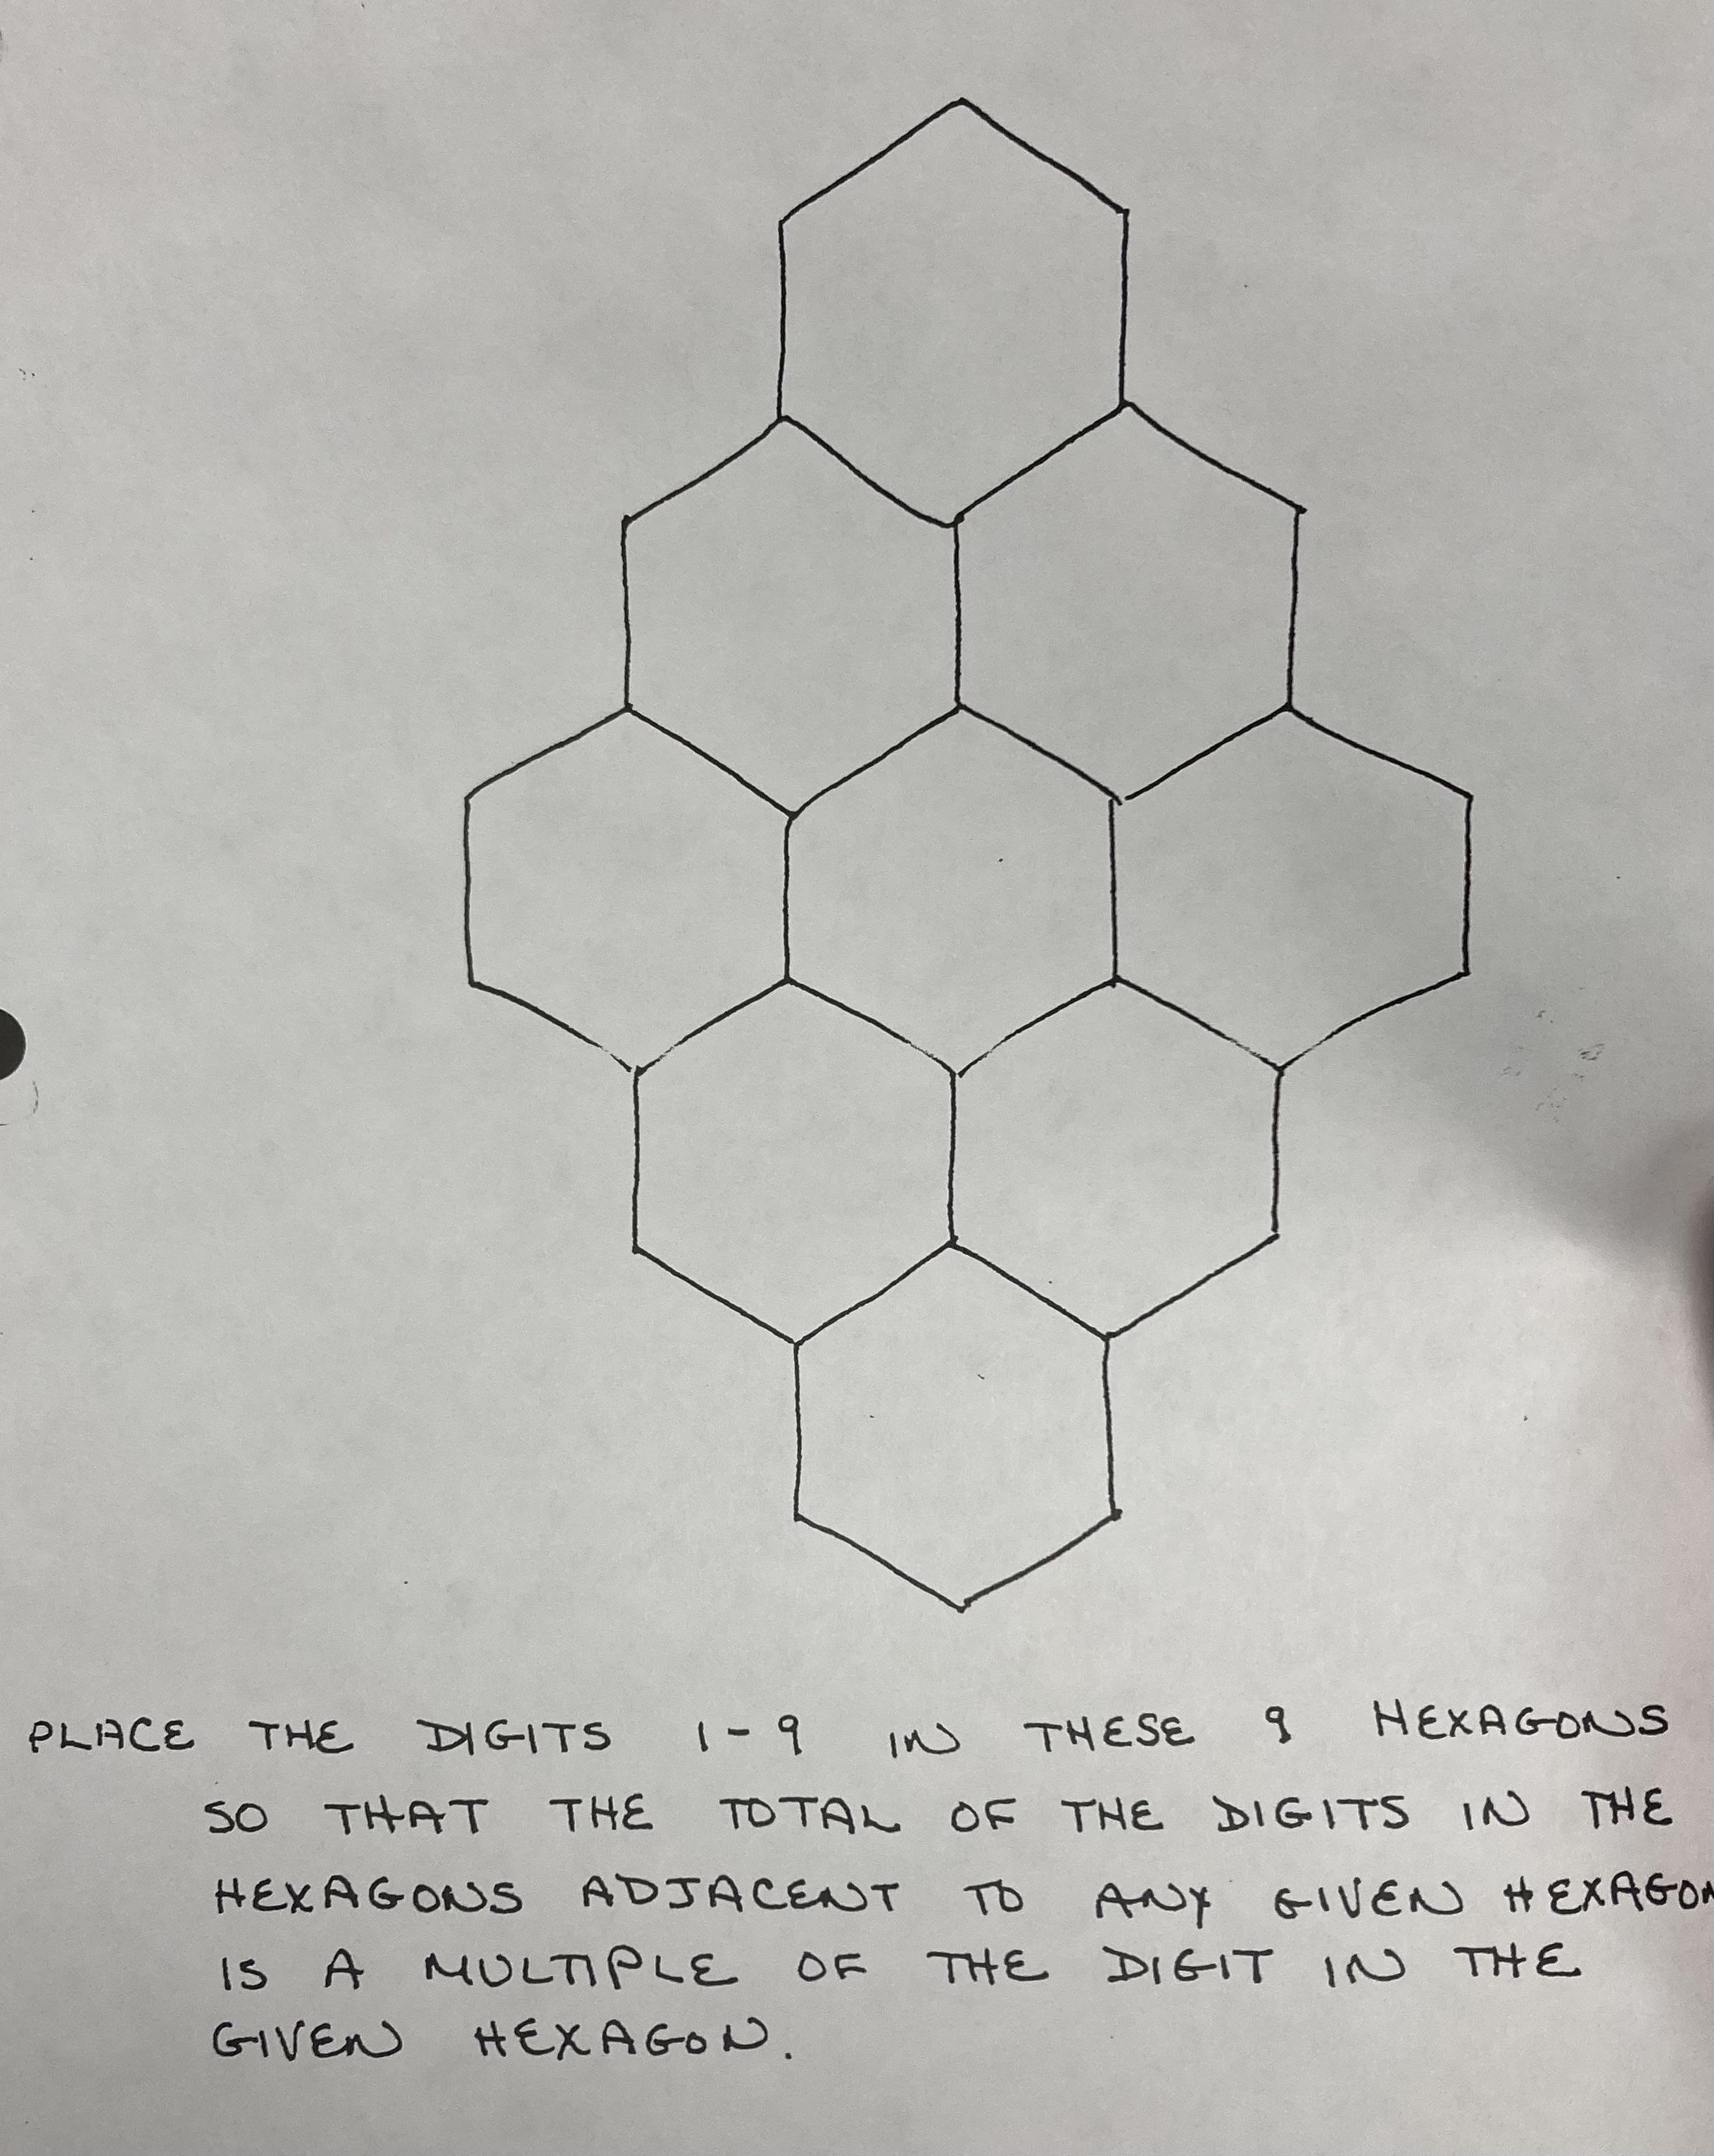 PLACE THE DIGITS 1-9 IN THESE 9 HEXAGONS
SO THAT THE TOTAL OF THE DIGITS IN THE
HEXAGONS ADJACENT TO ANY GIVEN HEXAGON
IS A MULTIPLE OF THE DIGIT IN THE
GIVEN HEXAGON.